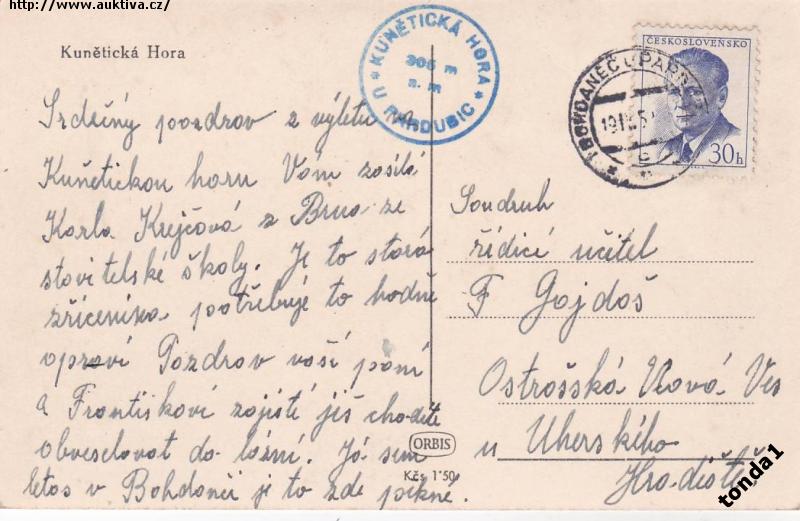 http://www.auktiva.cz/
Kunětická Hora
* KUNĚTICKÁ HORA * U PARDUBIC
305 m
n. m
ČESKOSLOVENSKO
30h
Srdečný pozdrav z výletu na
Kuňetickou horu Vám zasílá
Karla Krejčová z Brna ze
stavitelské školy. Je to stará
zřícenina potřebuje to hodně
oprav Pozdrav vaší paní
a Frantíkovi zajisté již chodíte
obveselovat do lázní. Já sem
letos v Bohdanči je to zde pěkné.
Soudruh
řídící učitel
F Gajdoš
Ostrošská Nová Ves
u Uherského
Hradiště
ORBIS
Kčs 1·50
tonda1